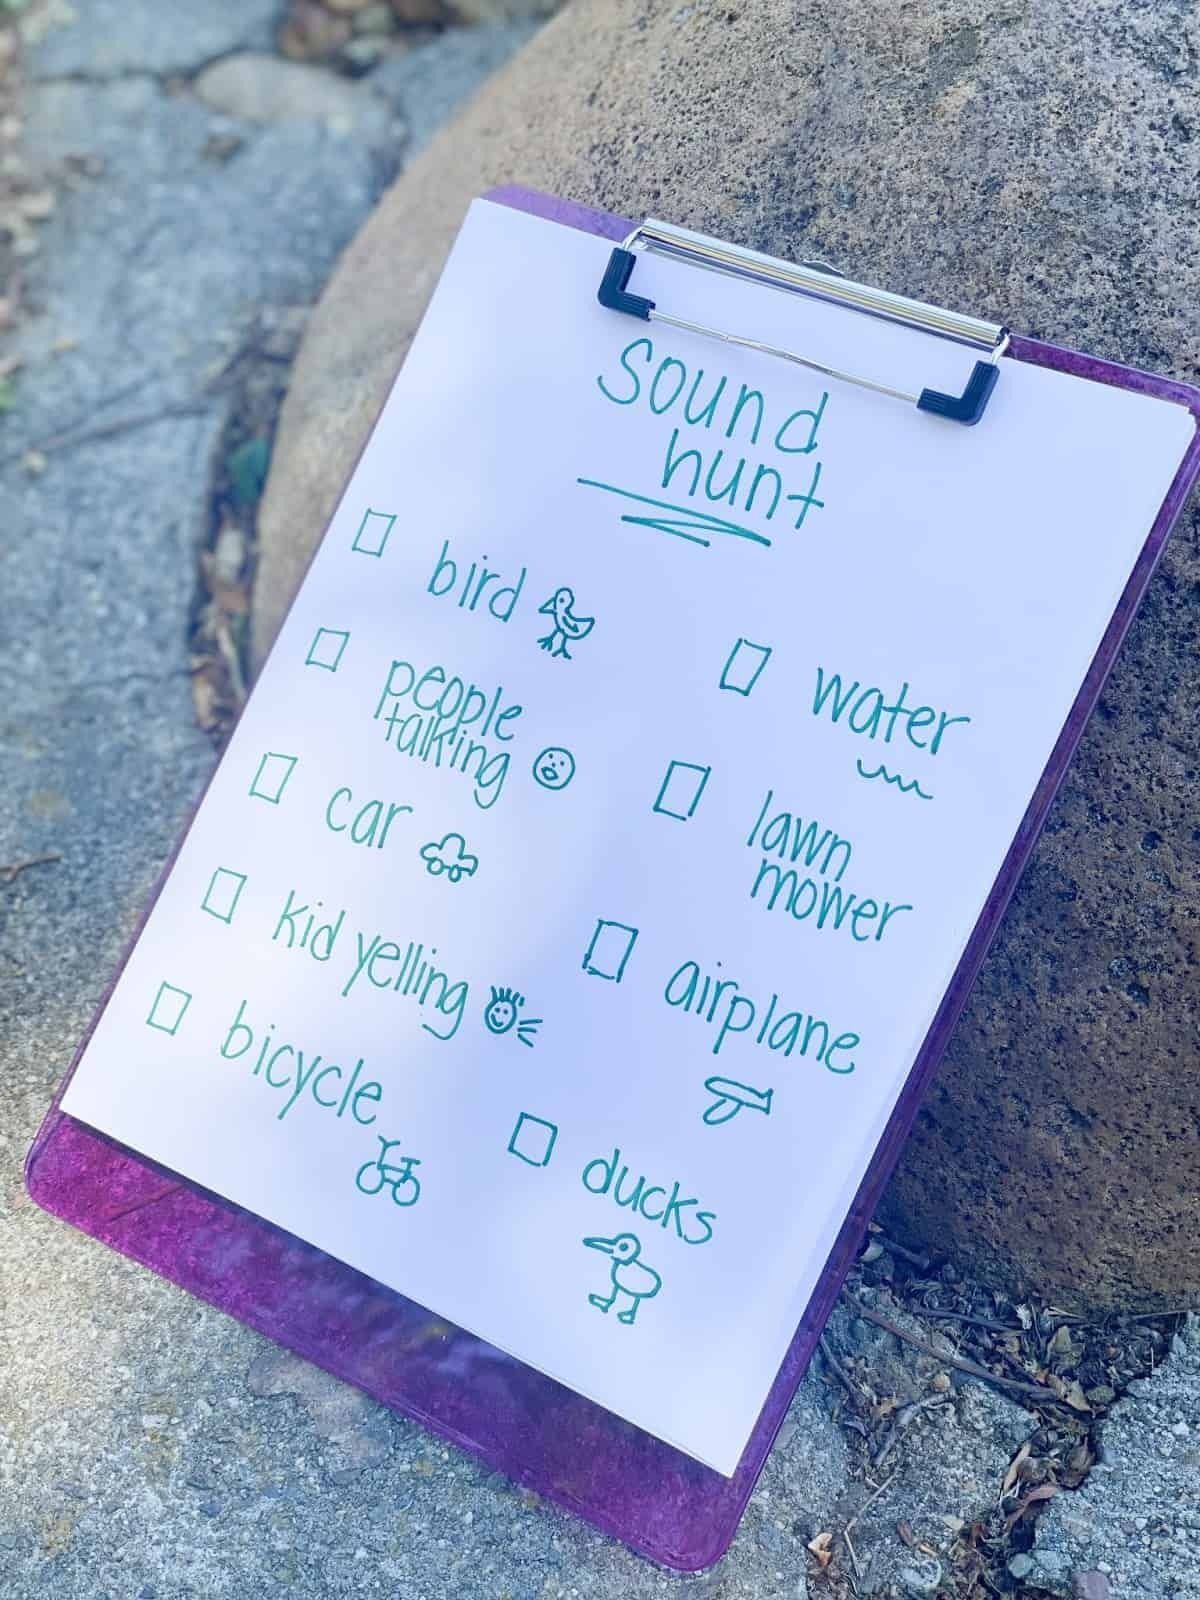 sound
hunt
bird
people
talking
car
kid yelling
bicycle
water
lawn
mower
airplane
ducks